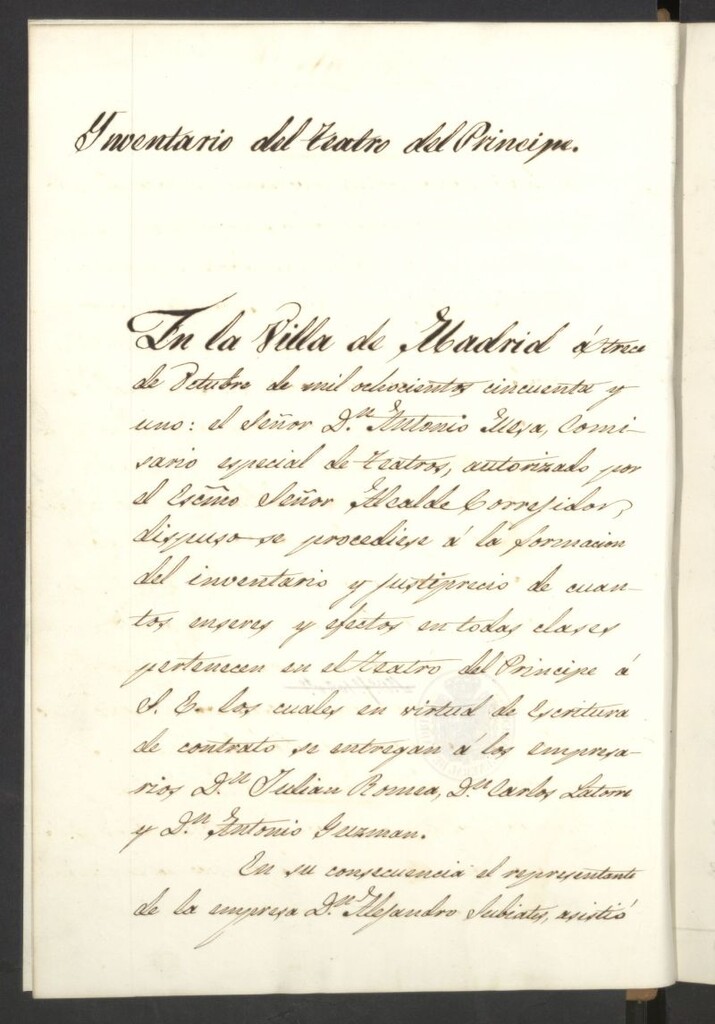 Inventario del Teatro del Principe.
En la Villa de Madrid á trece
de Octubre de mil ochocientos cincuenta y
uno: el Señor D.n Antonio Mesa, Comi-
sario especial de Teatros, autorizado por
el Escmo Señor Alcalde Corregidor,
dispuso se procediese á la formacion
del inventario y justiprecio de cuan-
tos enseres y efectos en todas clases
pertenecen en el Teatro del Principe á
S. E. los cuales en virtud de Escritura
de contrato se entregan á los empresa-
rios D.n Julian Romea, D.n Carlos Latorre
y D.n Antonio Guzman.
En su consecuencia el representante
de la empresa D.n Alejandro asistió